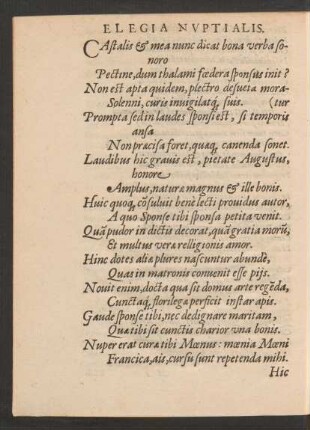 ELEGIA NVPTIALIS.
CAstalis & mea nunc dicat bona verba so-
noro
Pectine, dum thalami fœdera sponsus init?
Non est apta quidem, plectro desueta mora-
Solenni, curis inuigilatq́; suis. (tur
Prompta sed in laudes sponsi est, si temporis
ansa
Non præcisa foret, quaq́; canenda sonet.
Laudibus hic grauis est, pietate Augustus,
honore
Amplus, naturæ magnus & ille bonis.
Huic quoq́; cōsuluit benè lecti prouidus autor,
A quo Sponse tibi sponsa petita venit.
Quā pudor in dictis decorat, quā gratia morū,
Et multus veræ relligionis amor.
Hinc dotes aliæ plures nascuntur abundè,
Quas in matronis conuenit esse pijs.
Nouit enim, docta qua sit domus arte regēda,
Cunctaq́; florilega perficit instar apis.
Gaude sponse tibi, nec dedignare maritam,
Quæ tibi sit cunctis charior vna bonis.
Nuper erat curæ tibi Mœnus: mœnia Mœni
Francica, ais, cursu sunt repetenda mihi.
Hic